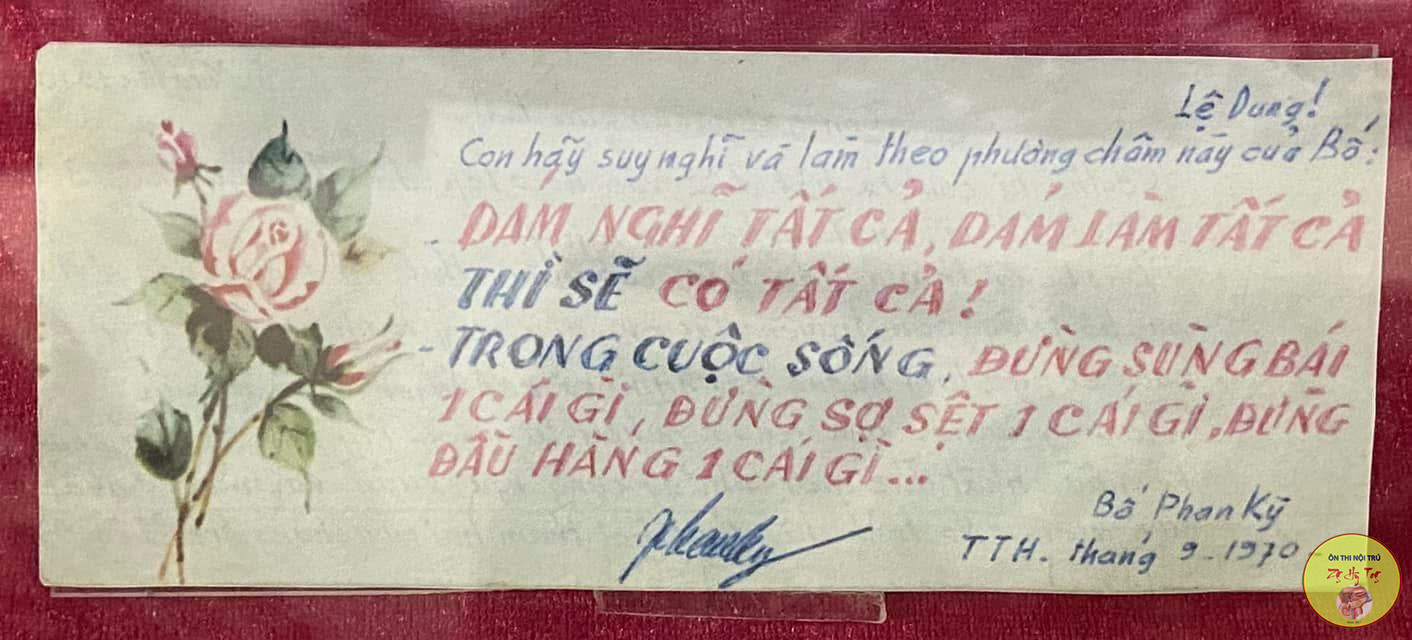 Lệ Dung!
Con hãy suy nghĩ và làm theo phương châm này của Bố:
- DÁM NGHĨ TẤT CẢ, DÁM LÀM TẤT CẢ
THÌ SẼ CÓ TẤT CẢ!
- TRONG CUỘC SỐNG, ĐỪNG SÙNG BÁI
1 CÁI GÌ, ĐỪNG SỢ SỆT 1 CÁI GÌ, ĐỪNG
ĐẦU HÀNG 1 CÁI GÌ...
Bố Phan Kỳ
TTH. tháng 9-1970-
ÔN THI NỘI TRÚ